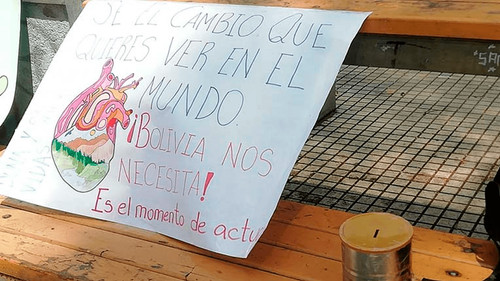 SÉ EL CAMBIO QUE
QUIERES VER EN EL
MUNDO.
¡BOLIVIA NOS
NECESITA!
Es el momento de actu